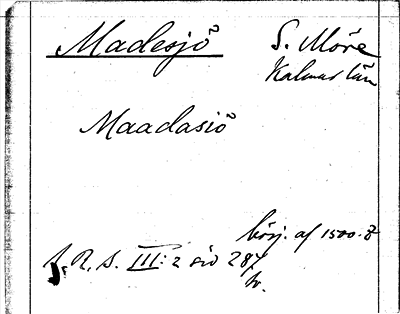 Madesjö
S. Möre
Kalmar län
Maadasiö
börj. af 1500-t
S. R. S. III: 2 sid 287